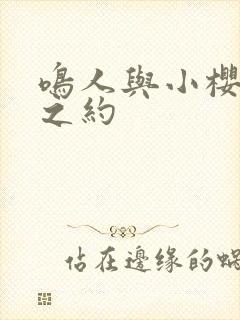 鳴人與小櫻
之約
佔在邊緣的蝸